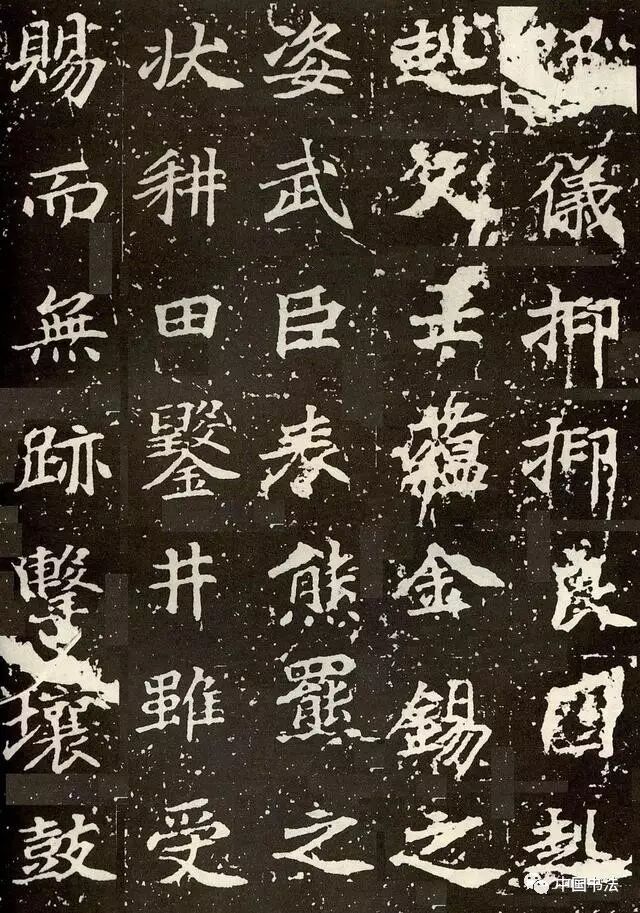 儀抑抑良因赳
赳文士蘊金錫之
姿武臣表熊羆之
狀耕田鑿井雖受
賜而無跡擊壤鼓
中国书法